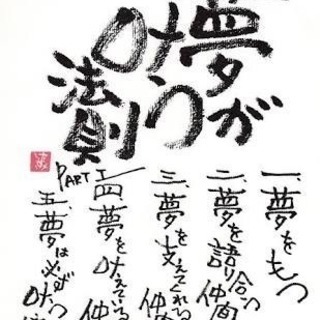 夢が
叶う
法則
PART I
一、夢をもつ
二、夢を語り合う仲間
三、夢を支えてくれる仲間
四、夢を叶えている仲
五、夢は必ず叶う